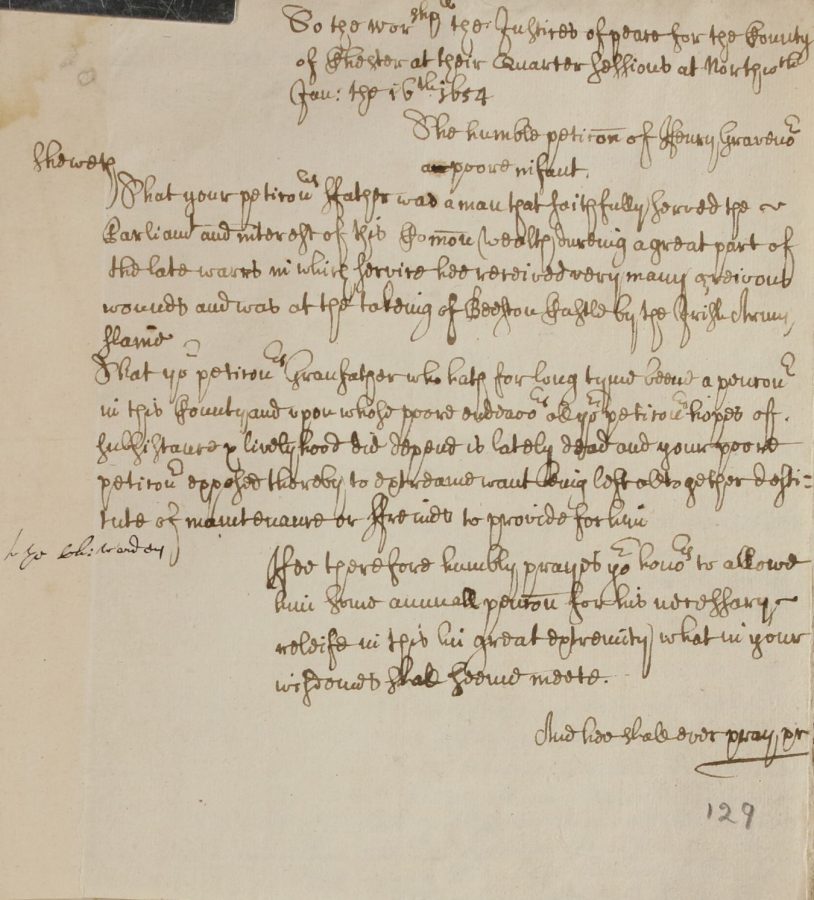 To the wor:shp:ll the Justices of peace for the County
of Chester at their Quarter Sessions at Northw:ch
Jan: the 16th 1654
The humble peticōn of Henry Graveno:r
a poore infant.
Sheweth
That your peticon:rs ffather was a man that faithfully served the
Parliamt and interest of this Comōn Wealth dureing a great part of
the late warrs in which service hee received very many greivous
wounds and was at the takeing of Beeston Castle by the Irish Army
slaine
That yo:r peticon:rs Granfather who hath for long tyme beene a pencon:r
in this County and upon whose poore endeavo:rs all yo:r peticon:rs hopes of
subsistance & livelyhood did depend is lately dead and your poore
peticon:r exposed thereby to extreame want being left altogether desti=
tute of maintenance or ffreinds to provide for him
to ye Ch:warden
Hee therefore humbly prayes yo:r hono:rs to allowe
him some annuall pencōn for his necessary
releife in this his great extremity what in your
wisdomes shall seeme meete.
And hee shall ever pray, &c
129